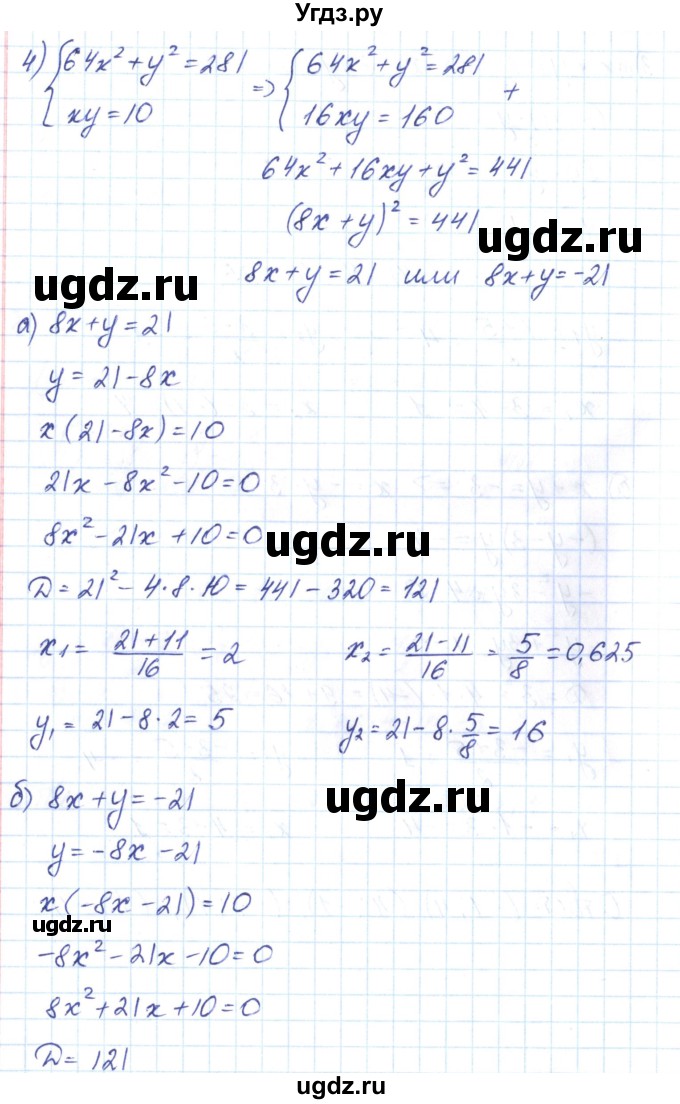 Угдз.ру
4) { 64x² + y² = 281 => { 64x² + y² = 281 +
xy = 10 16xy = 160
64x² + 16xy + y² = 441
(8x + y)² = 441
ugdz.ru
8x + y = 21 или 8x + y = -21
ugdz.ru
а) 8x + y = 21
y = 21 - 8x
x(21 - 8x) = 10
21x - 8x² - 10 = 0
8x² - 21x + 10 = 0
ugdz.ru
D = 21² - 4·8·10 = 441 - 320 = 121
x₁ = (21 + 11)/16 = 2 x₂ = (21 - 11)/16 = 5/8 = 0,625
y₁ = 21 - 8·2 = 5 y₂ = 21 - 8·5/8 = 16
б) 8x + y = -21
ugdz.ru
y = -8x - 21
x(-8x - 21) = 10
ugdz.ru
-8x² - 21x - 10 = 0
8x² + 21x + 10 = 0
D = 121
ugdz.ru